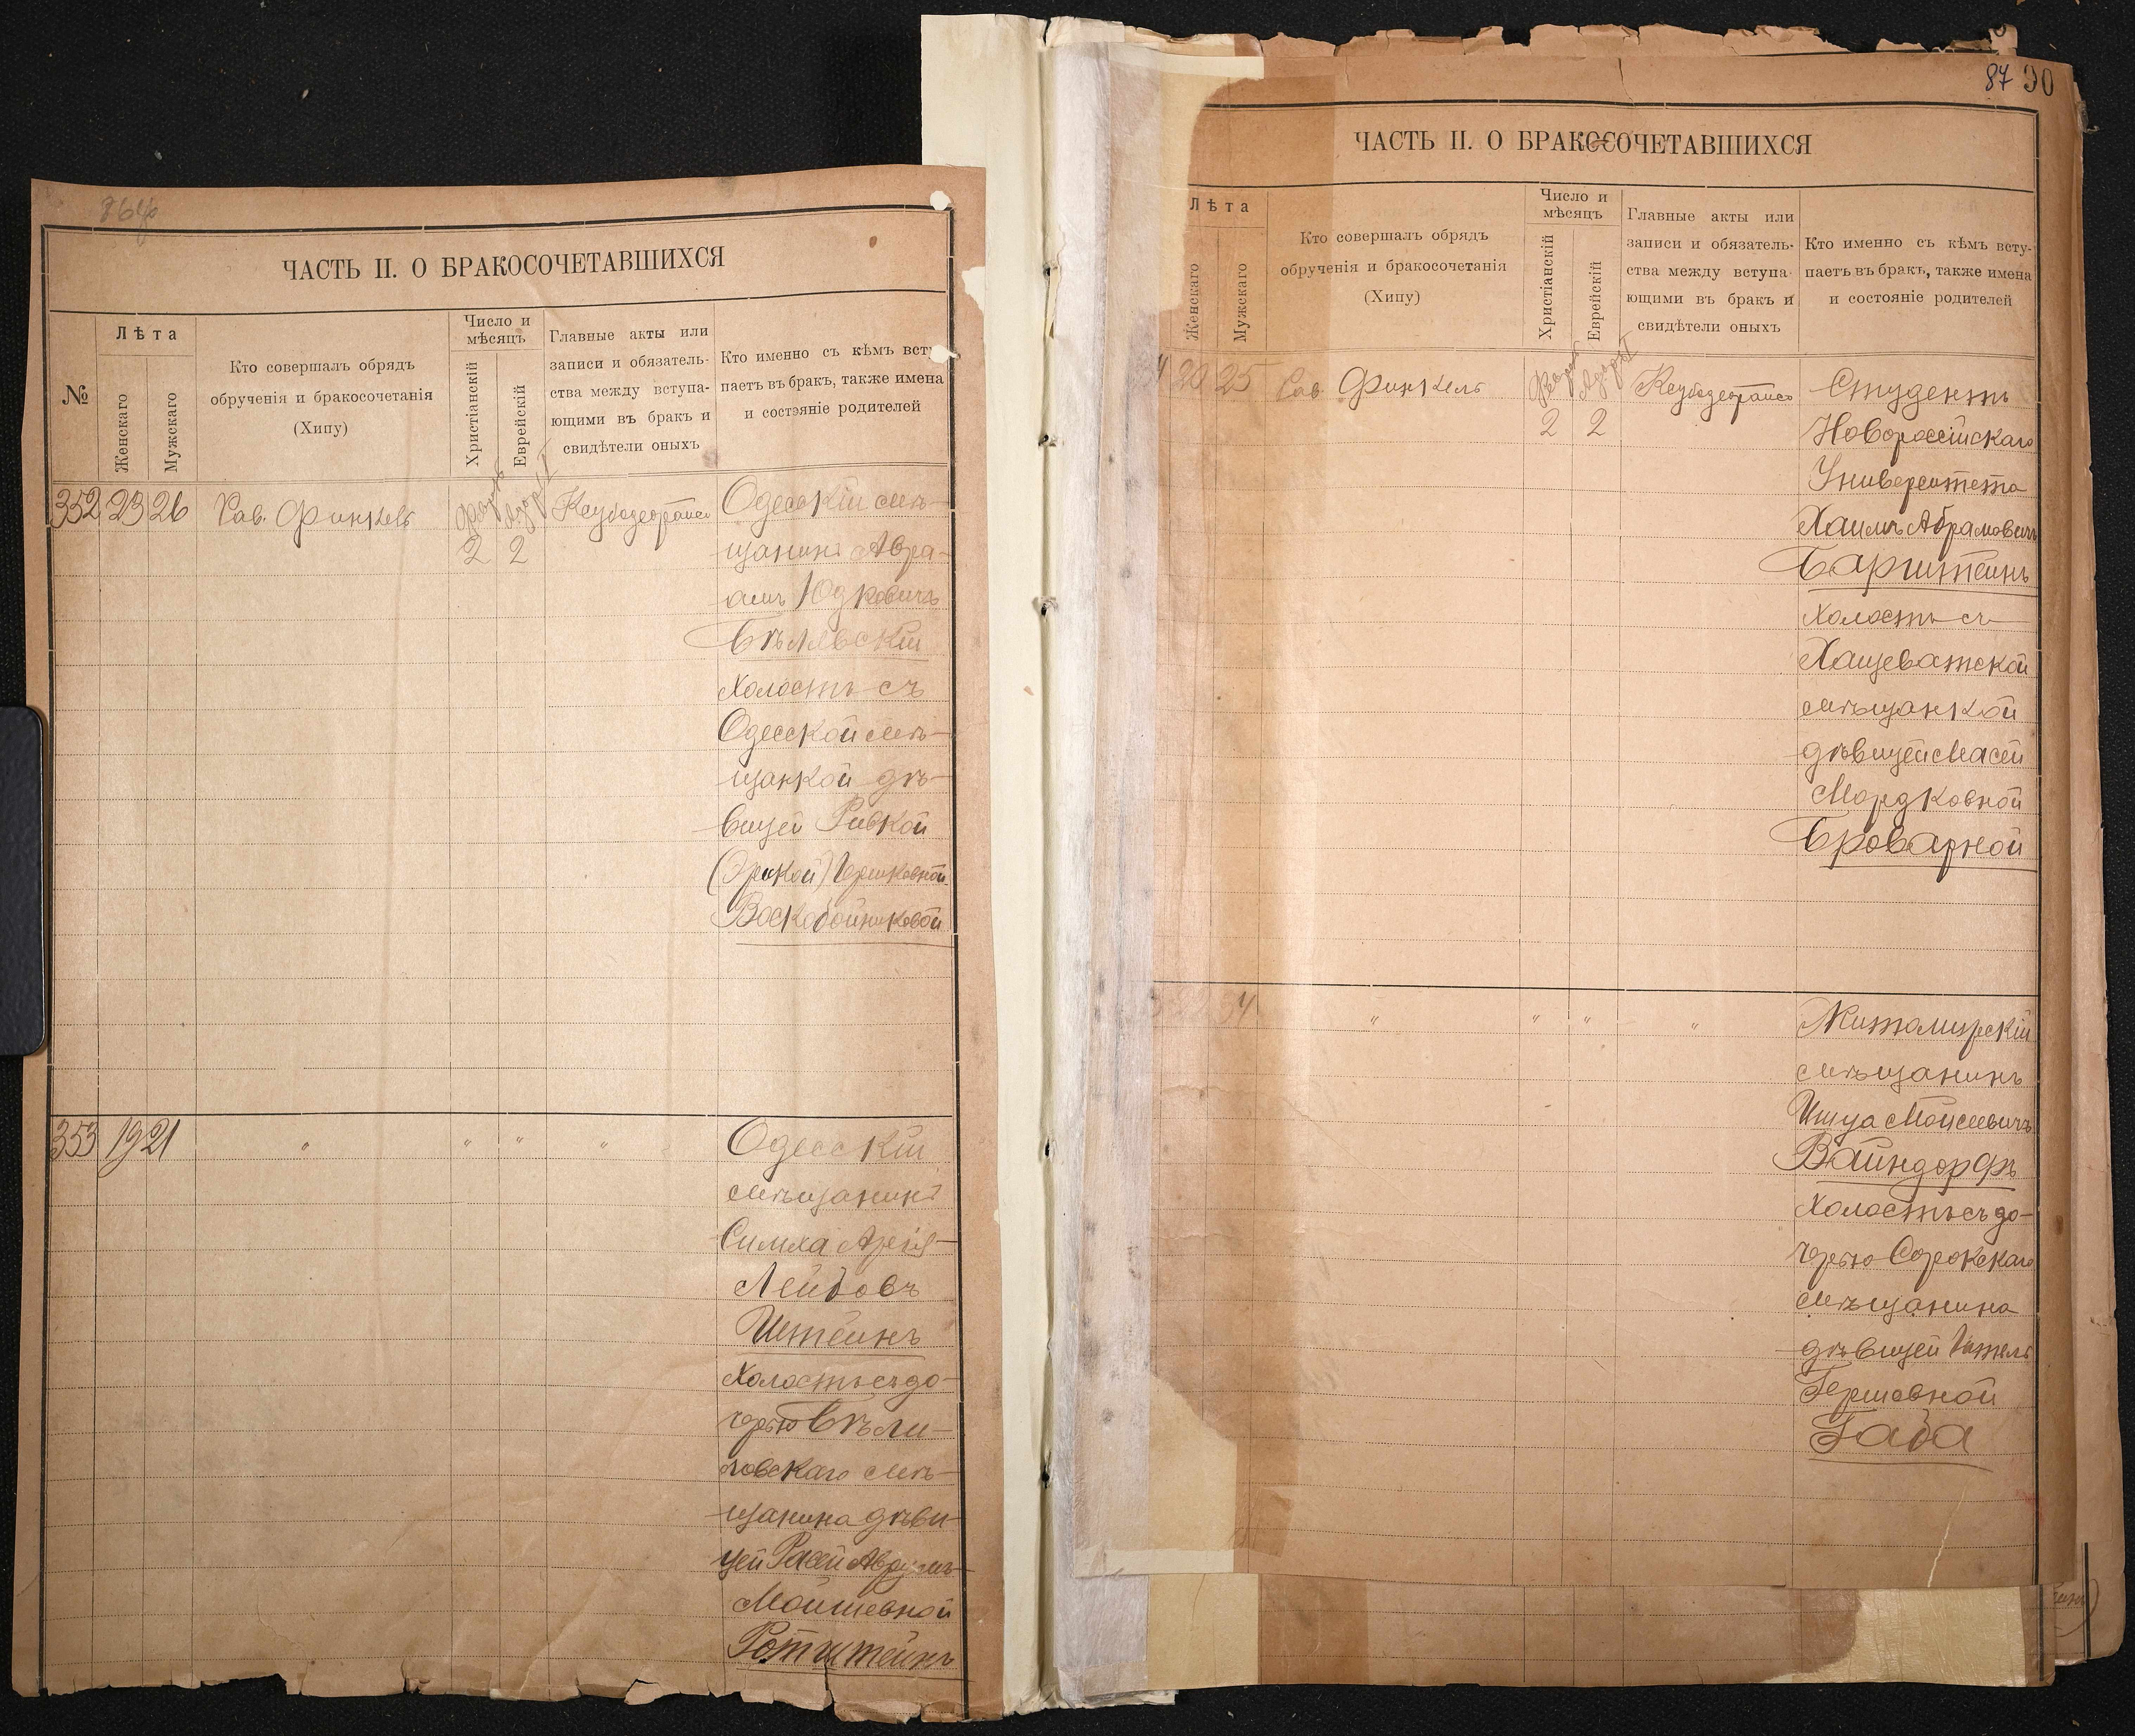 ЧАСТЬ II. О БРАКОСОЧЕТАВШИХСЯ
№
Лѣта
Женскаго
Мужскаго
Кто совершалъ обрядъ
обрученія и бракосочетанія
(Хипу)
Число и
мѣсяцъ
Христіанскій
Еврейскій
Главные акты или
записи и обязатель-
ства между вступа-
ющими въ бракъ и
свидѣтели оныхъ
Кто именно съ кѣмъ всту
паетъ въ бракъ, также имена
и состояніе родителей
352 23 26 Рав. Финкель
2 2
Одесскій мѣ-
щанинъ Авра-
амъ Юдковичъ
Бѣлявскій
холостъ съ
Одесской мѣ-
щанкой дѣ-
вицей Ривкой
Гершковной
Воскобойниковой
353 19 21 " " " "
Одесскій
мѣщанинъ
Симха Арій-
Лейбовъ
Штейнъ
холостъ съ до-
черью Бѣли-
ловскаго мѣ-
щанина дѣви-
цей Расей Аврумъ-
Мойшевной
Ротштейнъ
87 90
ЧАСТЬ II. О БРАКОСОЧЕТАВШИХСЯ
Лѣта
Женскаго
Мужскаго
Кто совершалъ обрядъ
обрученія и бракосочетанія
(Хипу)
Число и
мѣсяцъ
Христіанскій
Еврейскій
Главные акты или
записи и обязатель-
ства между вступа-
ющими въ бракъ и
свидѣтели оныхъ
Кто именно съ кѣмъ всту-
паетъ въ бракъ, также имена
и состояніе родителей
20 25 Рав. Финкель
2 2
Студентъ
Новороссійскаго
Университета
Хаимъ Абрамовичъ
Баршт​ейнъ
холостъ съ
Хащеватской
мѣщанкой
дѣвицей Масей
Мордковной
Броварной
34 " " " "
Житомирскій
мѣщанинъ
Ишуа Мойсеевичъ
Вайндорфъ
холостъ съ до-
черью Сорокскаго
мѣщанина
дѣвицей
Гершовной